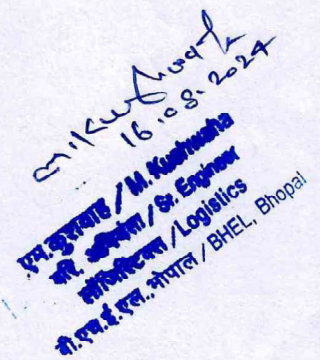 M.Kushwaha
16.08.2024
एम.कुशवाह / M.Kushwaha
वरि. अभियंता / Sr. Engineer
लॉजिस्टिक्स / Logistics
बी.एच.ई.एल.,भोपाल / BHEL, Bhopal